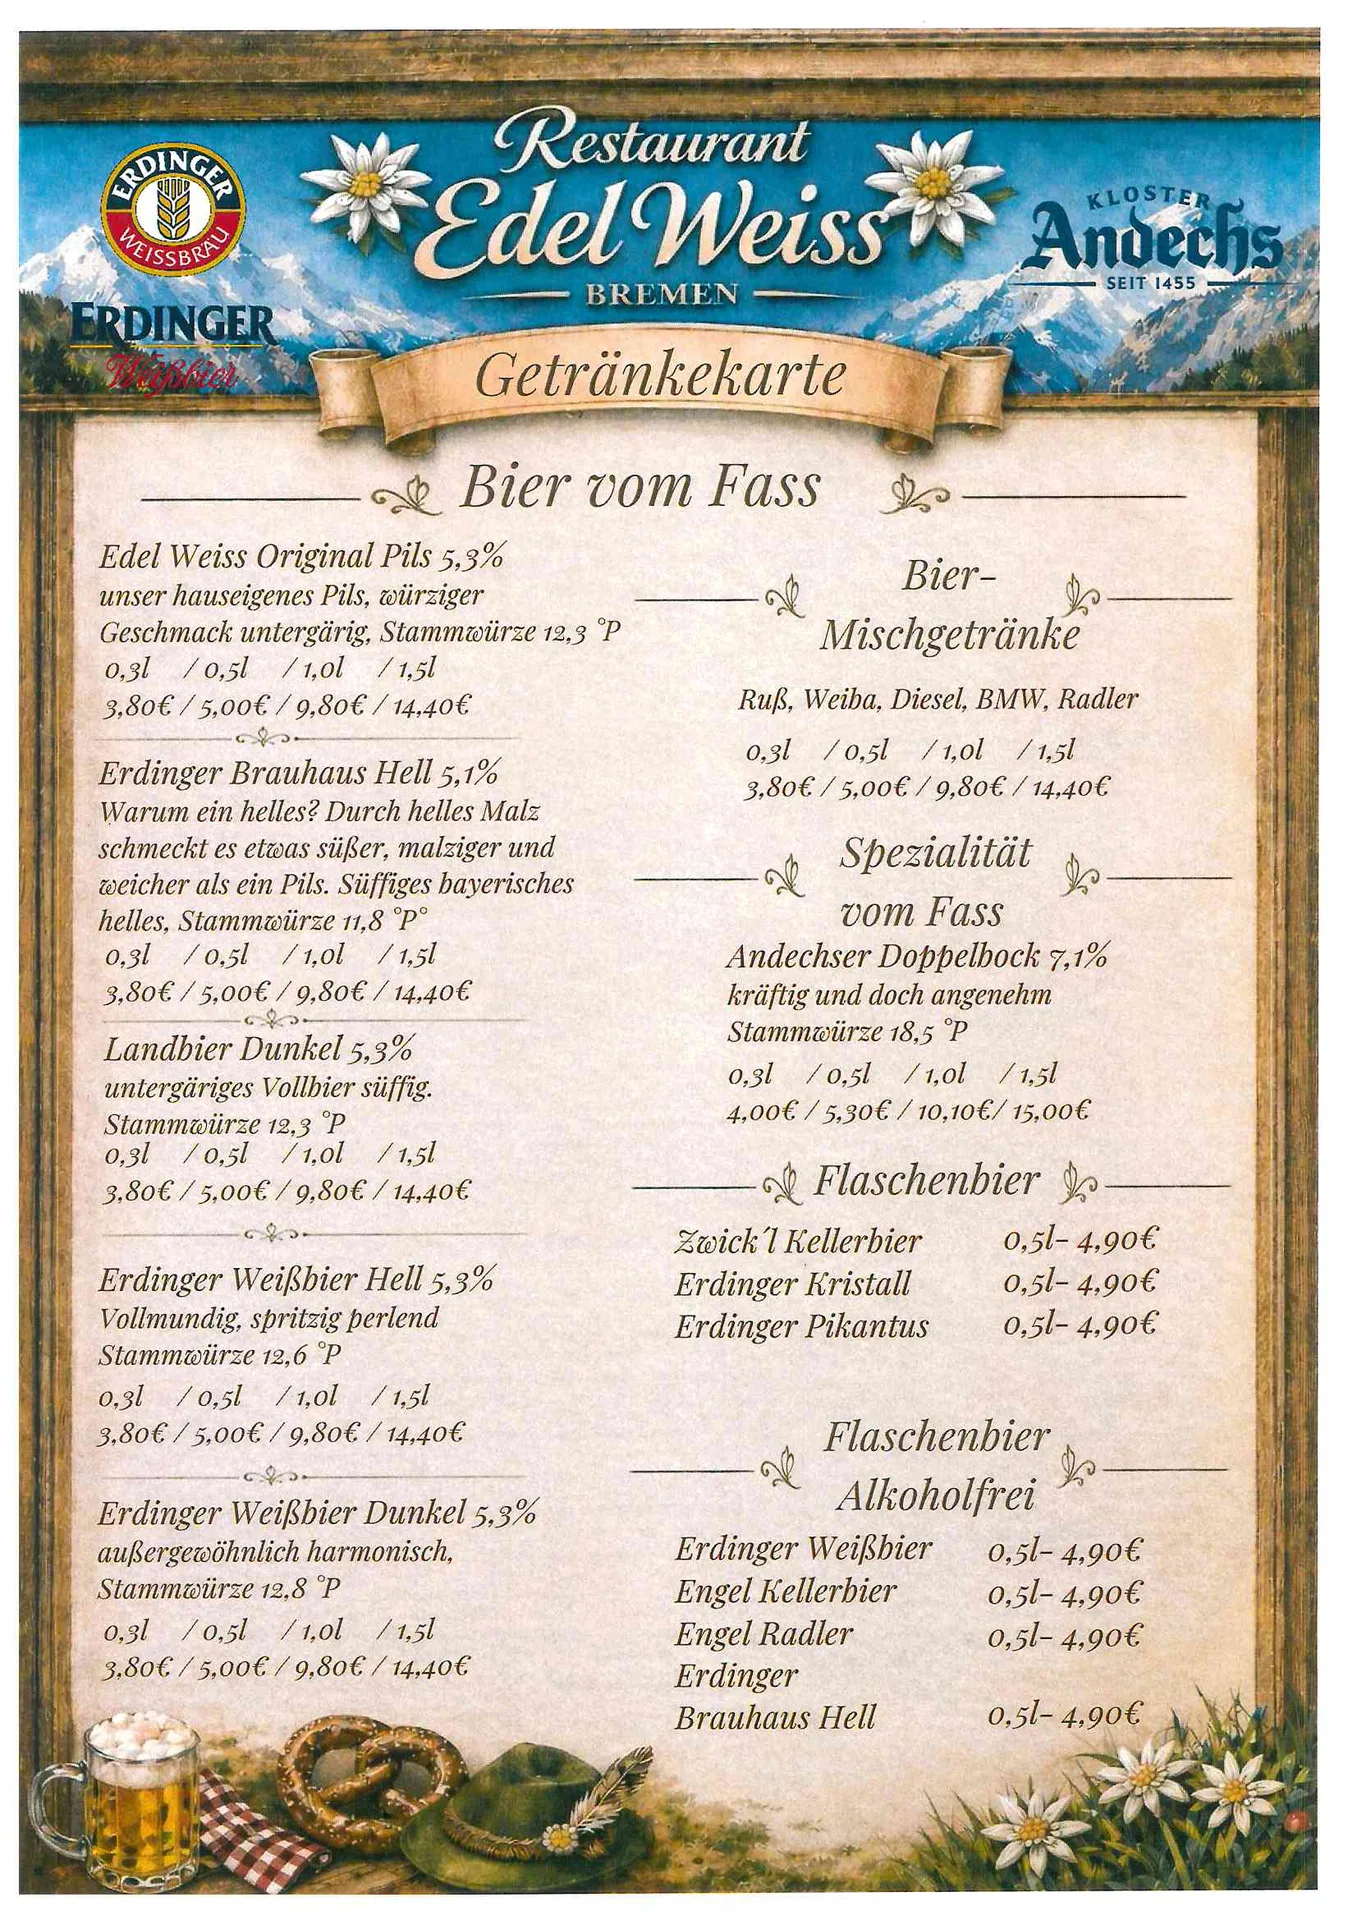 ERDINGER
WEISSBRÄU
ERDINGER
Weißbier
Restaurant
Edel Weiss
BREMEN
KLOSTER
Andechs
SEIT 1455
Getränkekarte
Bier vom Fass
Edel Weiss Original Pils 5,3%
unser hauseigenes Pils, würziger
Geschmack untergärig, Stammwürze 12,3 °P
0,3l / 0,5l / 1,0l / 1,5l
3,80€ / 5,00€ / 9,80€ / 14,40€
Erdinger Brauhaus Hell 5,1%
Warum ein helles? Durch helles Malz
schmeckt es etwas süßer, malziger und
weicher als ein Pils. Süffiges bayerisches
helles, Stammwürze 11,8 °P°
0,3l / 0,5l / 1,0l / 1,5l
3,80€ / 5,00€ / 9,80€ / 14,40€
Landbier Dunkel 5,3%
untergäriges Vollbier süffig.
Stammwürze 12,3 °P
0,3l / 0,5l / 1,0l / 1,5l
3,80€ / 5,00€ / 9,80€ / 14,40€
Erdinger Weißbier Hell 5,3%
Vollmundig, spritzig perlend
Stammwürze 12,6 °P
0,3l / 0,5l / 1,0l / 1,5l
3,80€ / 5,00€ / 9,80€ / 14,40€
Erdinger Weißbier Dunkel 5,3%
außergewöhnlich harmonisch,
Stammwürze 12,8 °P
0,3l / 0,5l / 1,0l / 1,5l
3,80€ / 5,00€ / 9,80€ / 14,40€
Bier-
Mischgetränke
Ruß, Weiba, Diesel, BMW, Radler
0,3l / 0,5l / 1,0l / 1,5l
3,80€ / 5,00€ / 9,80€ / 14,40€
Spezialität
vom Fass
Andechser Doppelbock 7,1%
kräftig und doch angenehm
Stammwürze 18,5 °P
0,3l / 0,5l / 1,0l / 1,5l
4,00€ / 5,30€ / 10,10€/ 15,00€
Flaschenbier
Zwick´l Kellerbier 0,5l- 4,90€
Erdinger Kristall 0,5l- 4,90€
Erdinger Pikantus 0,5l- 4,90€
Flaschenbier
Alkoholfrei
Erdinger Weißbier 0,5l- 4,90€
Engel Kellerbier 0,5l- 4,90€
Engel Radler 0,5l- 4,90€
Erdinger
Brauhaus Hell 0,5l- 4,90€